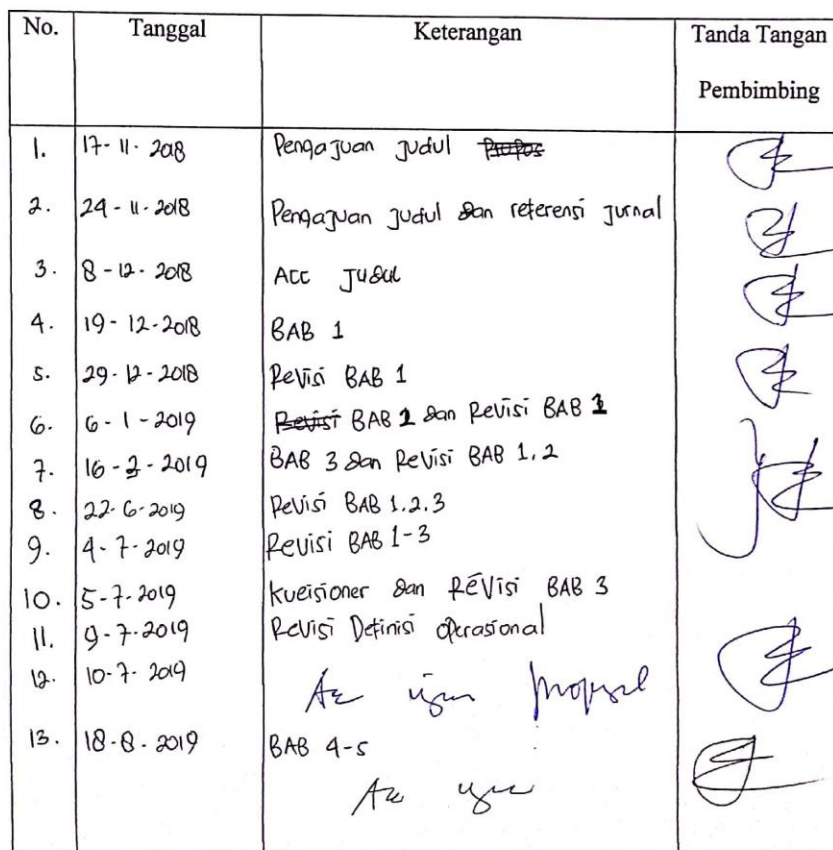 No. Tanggal Keterangan Tanda Tangan
Pembimbing
1. 17-11-2018 Pengajuan Judul Propos
2. 24-11-2018 Pengajuan Judul dan referensi Jurnal
3. 8-12-2018 Acc Judul
4. 19-12-2018 BAB 1
5. 29-12-2018 Revisi BAB 1
6. 6-1-2019 Revisi BAB 2 dan Revisi BAB 1
7. 16-2-2019 BAB 3 dan Revisi BAB 1.2
8. 22-6-2019 Revisi BAB 1.2.3
9. 4-7-2019 Revisi BAB 1-3
10. 5-7-2019 Kueisioner dan Revisi BAB 3
11. 9-7-2019 Revisi Definisi Operasional
12. 10-7-2019 Acc ujian proposal
13. 18-8-2019 BAB 4-5
Acc